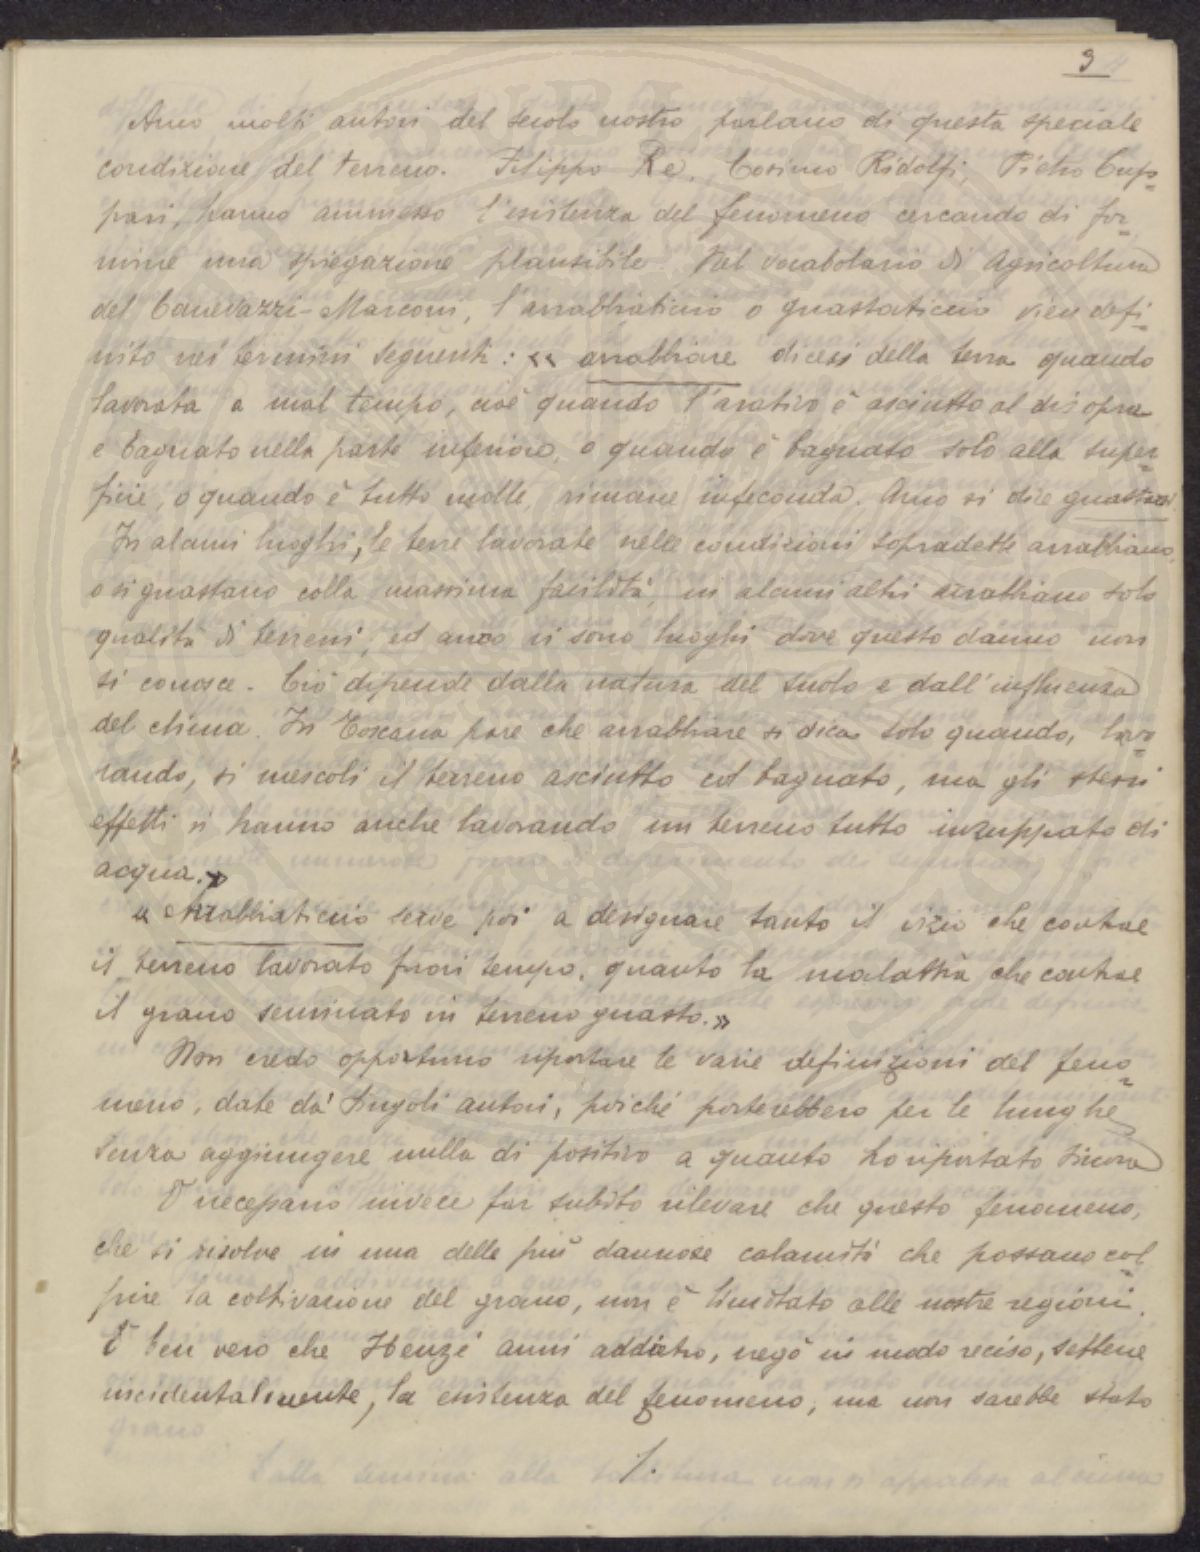 3
Anco molti autori del secolo nostro parlano di questa speciale
condizione del terreno. Filippo Re, Cosimo Ridolfi, Pietro Cup=
pari, hanno ammesso l'esistenza del fenomeno cercando di for=
nirne una spiegazione plausibile. Nel vocabolario di Agricoltura
del Canevazzi-Marconi, l'arrabbiaticcio o guastaticcio vien defi=
nito nei termini seguenti: « arrabbiare dicesi della terra quando
lavorata a mal tempo, cioè quando l'arativo è asciutto al disopra
e bagnato nella parte inferiore, o quando è bagnato solo alla super=
ficie, o quando è tutto molle, rimane infeconda. Anco si dice guastarsi
In alcuni luoghi, le terre lavorate nelle condizioni sopradette arrabbiano,
o si guastano colla massima facilità, in alcuni altri arrabbiano solo
qualità di terreni, ed anco vi sono luoghi dove questo danno non
si conosce. Ciò dipende dalla natura del suolo e dall'influenza
del clima. In Toscana pare che arrabbiare si dica solo quando, lavo=
rando, si mescoli il terreno asciutto col bagnato, ma gli stessi
effetti si hanno anche lavorando un terreno tutto inzuppato di
acqua.»
« Arrabbiaticcio serve poi a designare tanto il vizio che contrae
il terreno lavorato fuori tempo, quanto la malattia che contrae
il grano seminato in terreno guasto.»
Non credo opportuno riportare le varie definizioni del feno=
meno, date da' singoli autori, poiché porterebbero per le lunghe
senza aggiungere nulla di positivo a quanto ho riportato sinora
È necessario invece far subito rilevare che questo fenomeno,
che si risolve in una delle più dannose calamità che possano col=
pire la coltivazione del grano, non è limitato alle nostre regioni.
È ben vero che Heuzé anni addietro, negò in modo reciso, sebbene
incidentalmente, la esistenza del fenomeno, ma non sarebbe stato
./.